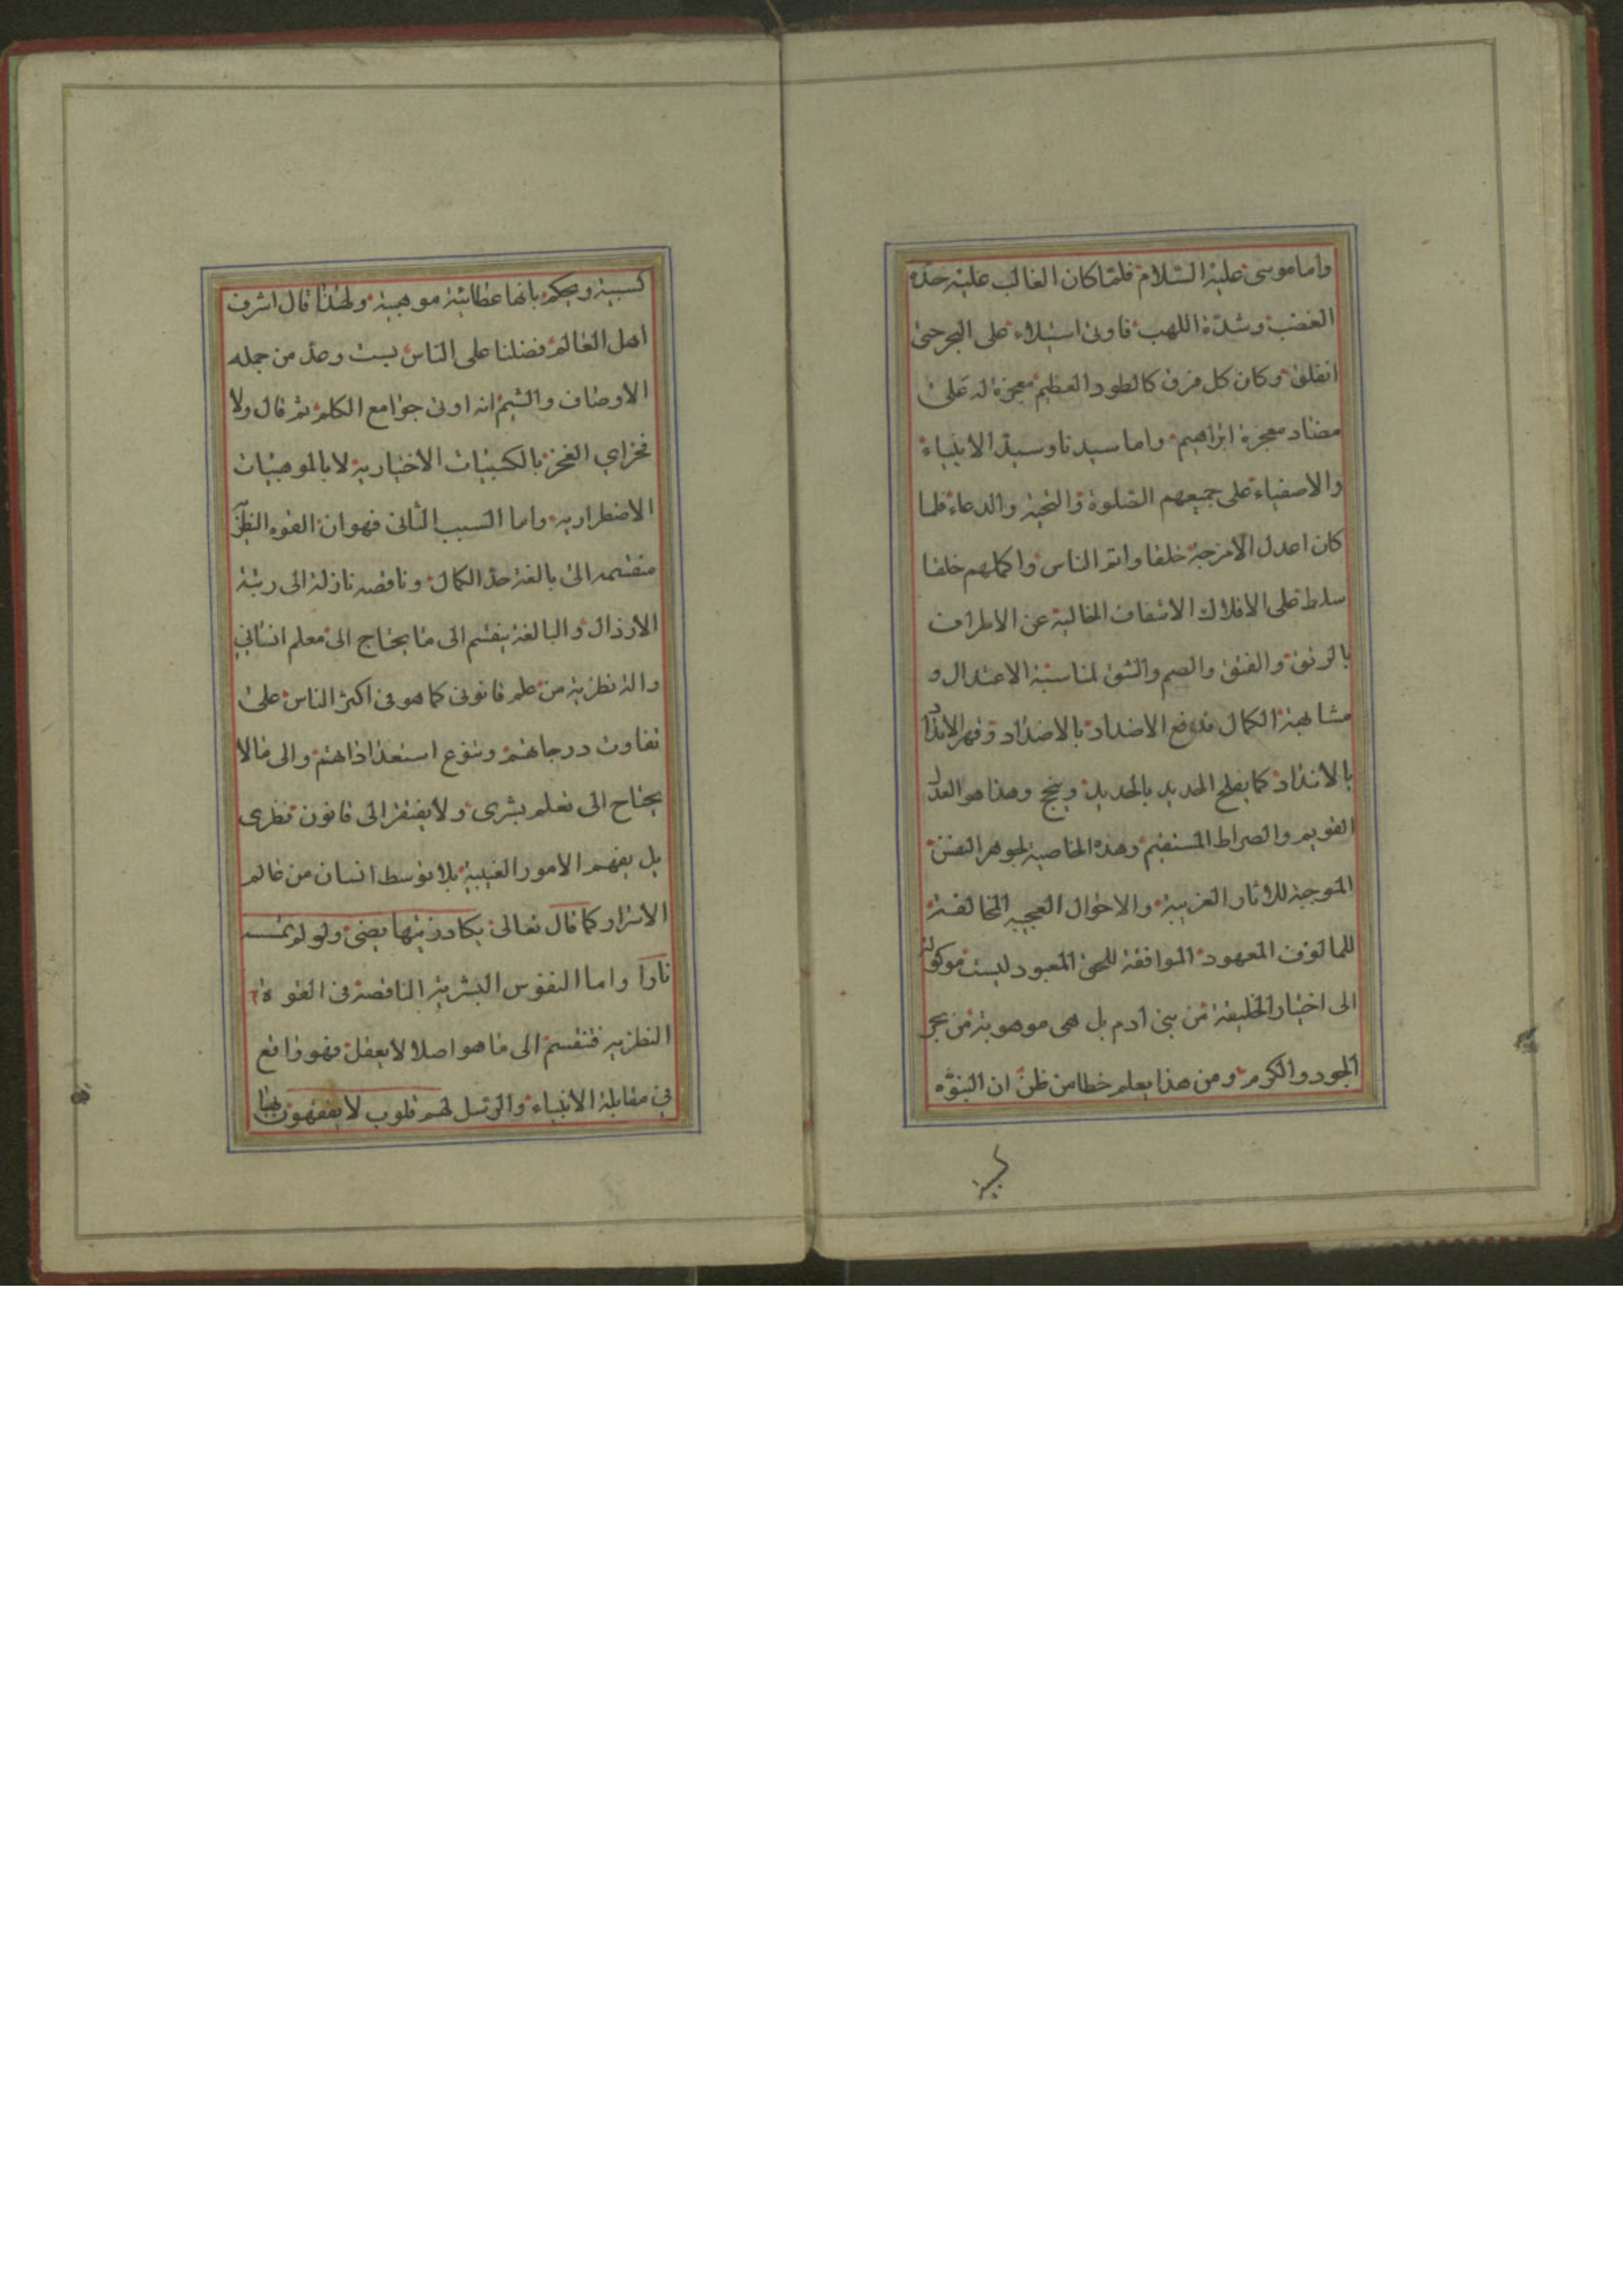 واما موسى عليه السلام فلما كان الغالب عليه حدة
الغضب وشدة اللهب فاوتى استيلاء على البحر حتى
انفلق وكان كل فرق كالطود العظيم معجزة له على
مضاد معجزة ابراهيم واما سيدنا وسيد الانبياء
والاصفياء على جميعهم الصلوة والتحية والدعاء فلما
كان اعدل الامزجة خلقا واتم الناس واكملهم خلقا
سلط على الافلاك الاشفاف الخالية عن الاطراف
بالرتق والفتق والصم والشق لمناسبة الاعتدال و
مشابهة الكمال فدفع الاضداد بالاضداد وقهر الانداد
بالانداد كما يفلح الحديد بالحديد وينجح وهذا هو العدل
القويم والصراط المستقيم وهذه الخاصية لجوهر النفس
الموجبة للاثار الغريبة والاحوال العجيبه المخالفة
للمالوف المعهود الموافقة للحق المعبود ليست موكولة
الى اختيار الخليقة من بنى ادم بل هى موهوبة من بحر
الجود والكرم ومن هذا يعلم خطا من ظن ان النبوه
كسبية ويحكم بانها عطائية موهبية ولهذا قال اشرف
اهل العالم فضلنا على الناس بست وعد من جمله
الاوصاف والشيم انه اوتى جوامع الكلم ثم قال ولا
فخر اى الفخر بالكسبيات الاختيارية لا بالموهبيات
الاضطراريه واما السبب الثانى فهو ان القوه النظرية
منقسمه الى بالغة حد الكمال وناقصه نازلة الى رتبة
الارذال والبالغة ينقسم الى ما يحتاج الى معلم انسانى
والة نظرية من علم قانونى كما هو فى اكثر الناس على
تفاوت درجاتهم وتنوع استعداداتهم والى مالا
يحتاح الى تعلم بشرى ولا يفتقر الى قانون نظرى
بل يفهم الامور الغيبية بلا توسط انسان من عالم
الاسرار كما قال تعالى يكاد زيتها يضئ ولو لم تمسسه
نارا واما النفوس البشرية الناقصة فى القوة
النظريه فتنقسم الى ما هو اصلا لا يعقل فهو واقع
فى مقابلة الانبياء والرسل لهم قلوب لا يفقهون بها